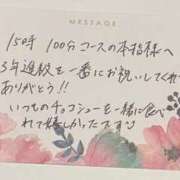 MESSAGE
15時 100分コースの本指様へ
3年進級を一番にお祝いしてくれて
ありがとう!!
いつものチョコシューを一緒に食べ
れて嬉しかったです